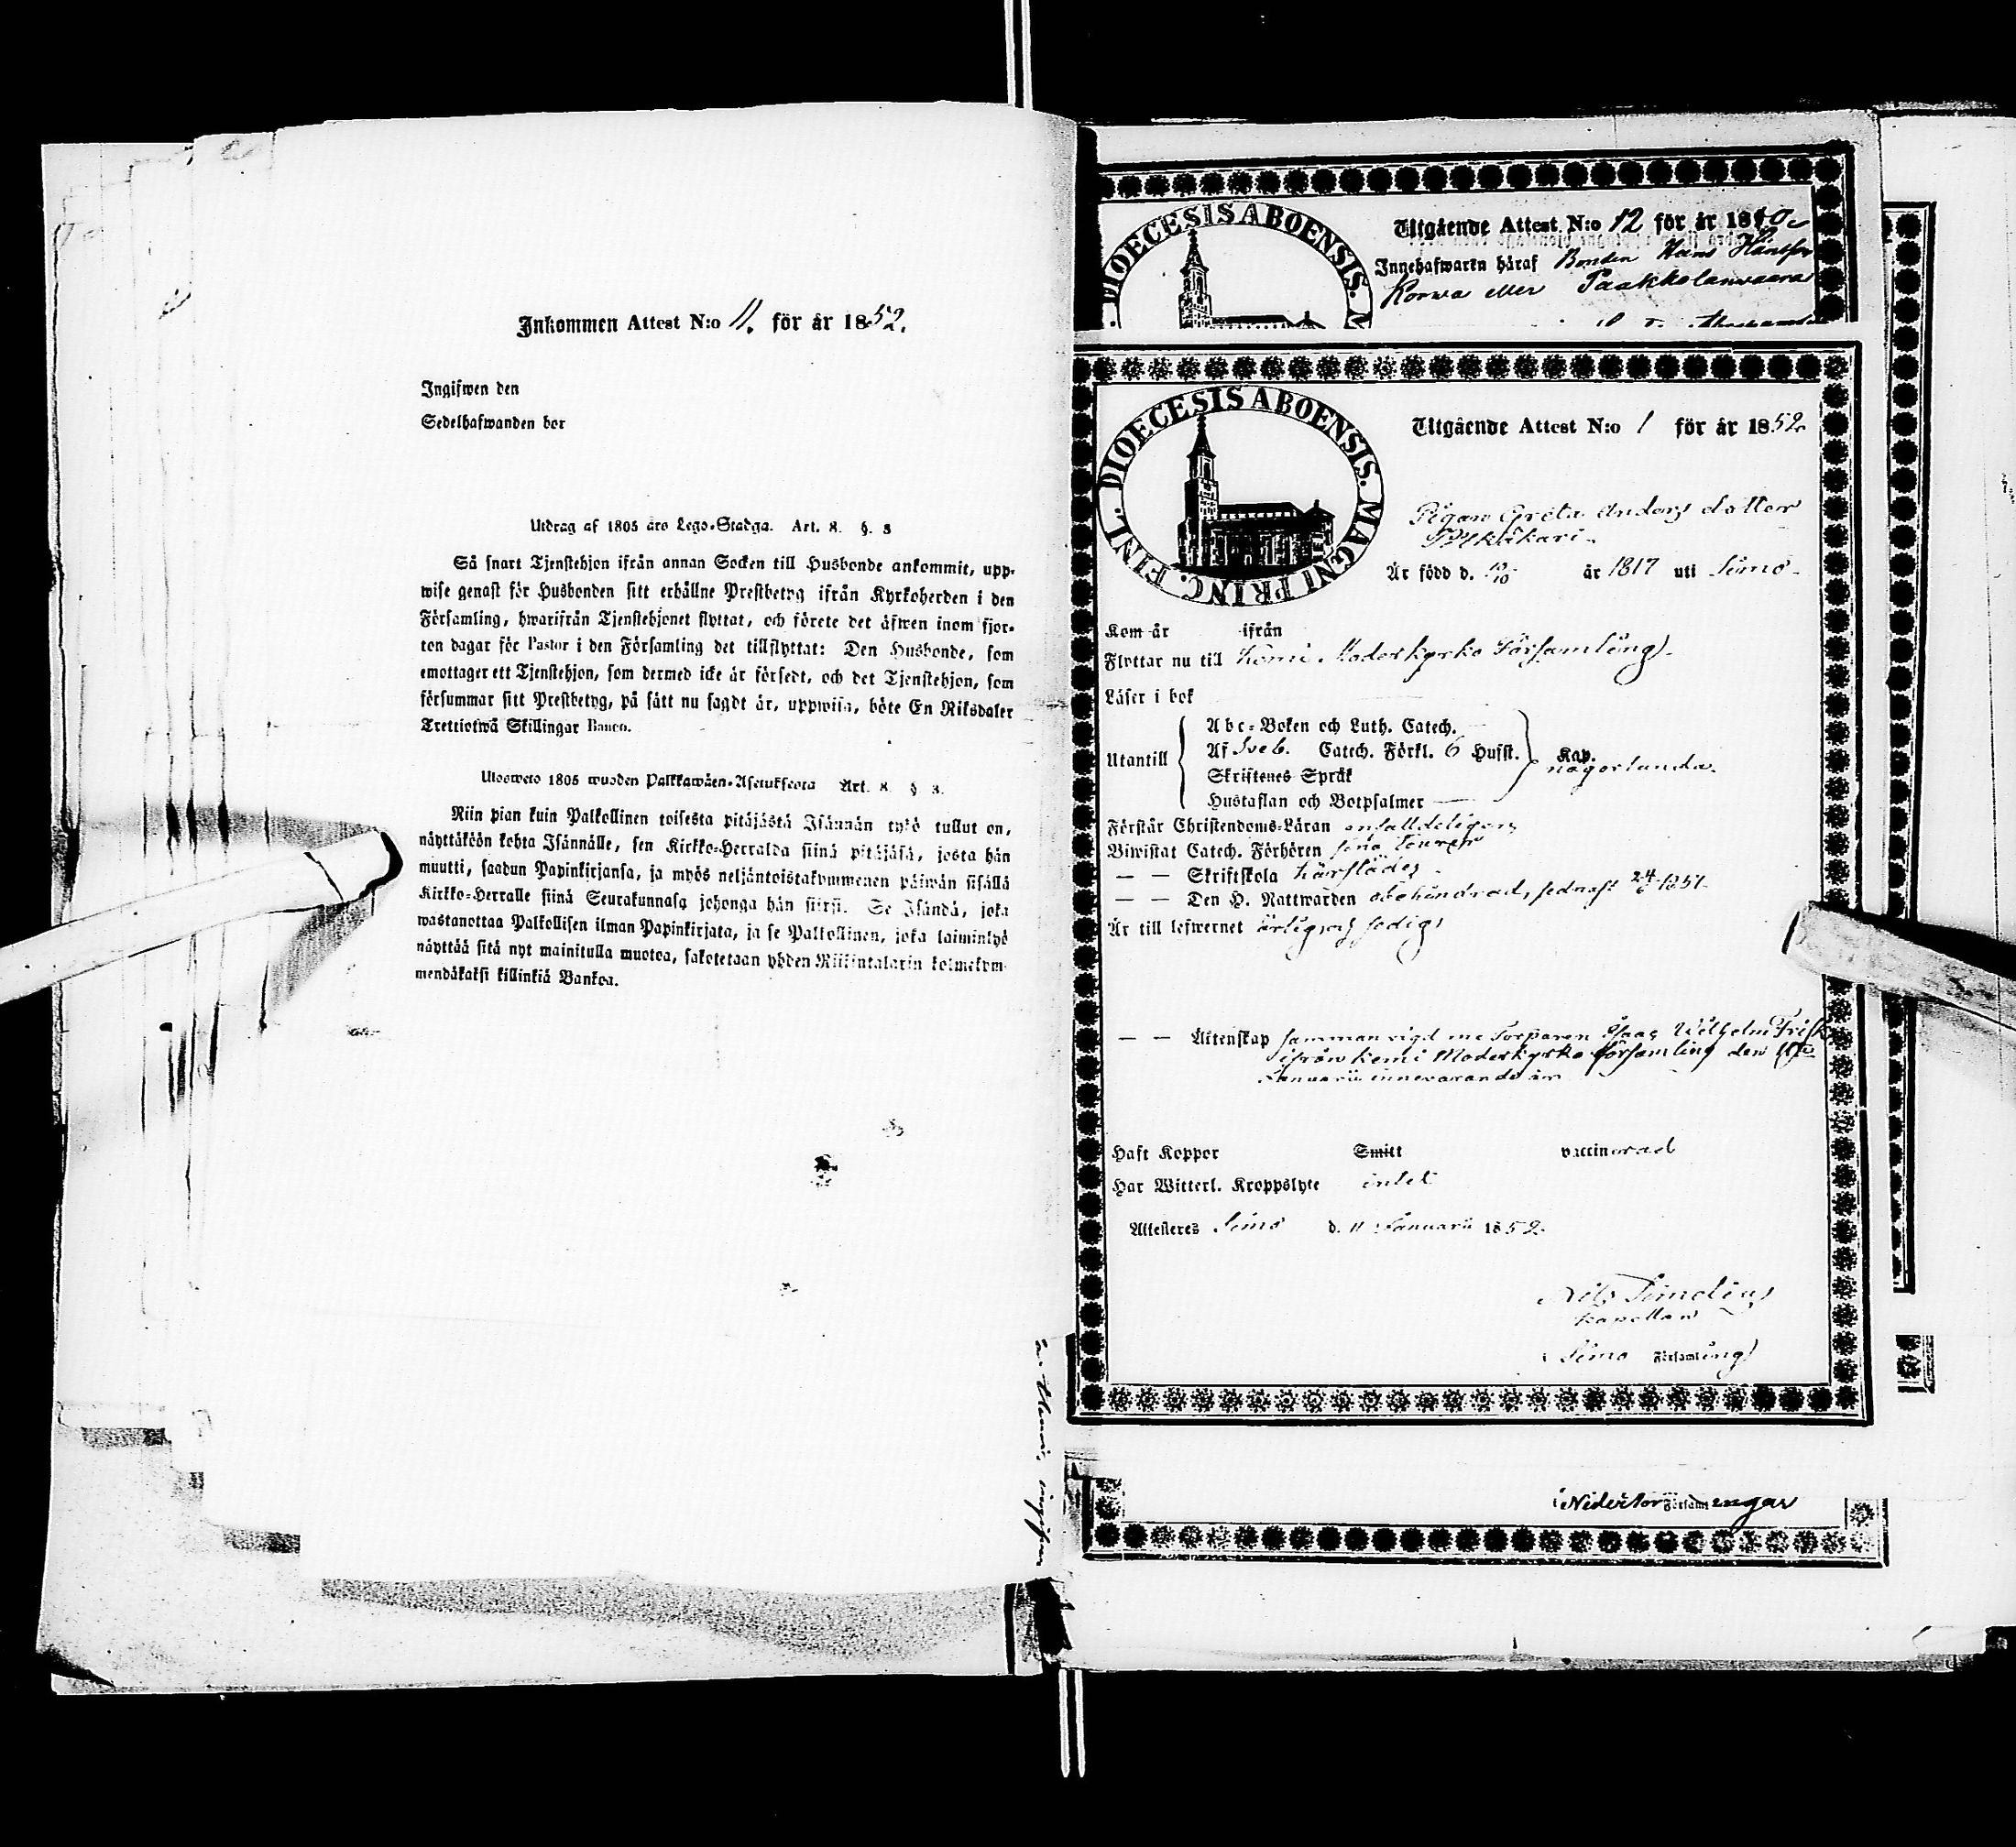 Inkommen Attest N:o 11. för år 1852.
Ingifwen den
Sedelhafwanden bor
Utdrag af 1805 års Lego-Stadga. Art. 8. §. 3
Så snart Tjenstehjon ifrån annan Socken till Husbonde ankommit, upp-
wise genast för Husbonden sitt erhållne Prestbetyg ifrån Kyrkoherden i den
Församling, hwarifrån Tjenstehjonet flyttat, och förete det äfwen inom fjor-
ton dagar för Pastor i den Församling det tillflyttat: Den Husbonde, som
emottager ett Tjenstehjon, som dermed icke är försedt, och det Tjenstehjon, som
försummar sitt Prestbetyg, på sätt nu sagdt är, uppwisa, böte En Riksdaler
Trettiotwå Skillingar Banco.
Ulosweto 1805 wuoden Palkkawäen-Asetuksesta Art. 8. § 3.
Niin pian kuin Palkollinen toisesta pitäjästä Isännän tykö tullut on,
näyttäköön kohta Isännälle, sen Kirkko-Herralda siinä pitäjäsä, josta hän
muutti, saadun Papinkirjansa, ja myös neljäntoistakymmenen päiwän sisällä
Kirkko-Herralle siinä Seurakunnasa johonga hän siirsi. Se Isändä, joka
wastanottaa Palkollisen ilman Papinkirjata, ja se Palkollinen, joka laiminlyö
näyttää sitä nyt mainitulla muotoa, sakotetaan yhden Riikintalarin kolmekym-
mendäkaksi killinkiä Bankoa.
DIOECESIS ABOENSIS. M
Utgående Attest N:o 12 för år 18
Innehafwaren häraf Bonden Hans
Korwa eller Paakkolanwaara
DIOECESIS ABOENSIS. MAGNI PRINC. FINL.
Utgående Attest N:o 1 för år 1852.
Pigan Greta Anders dotter
Är född d. 10/10 år 1817 uti Simo
Kom år ifrån
Flyttar nu till Kemi Moderkyrko Församling
Läser i bok
Utantill
Abc-Boken och Luth. Catech.
Af Sveb. Catech. Förkl. 6 Hufst. Kap. någorlunda.
Skriftenes Språk
Hustaflan och Botpsalmer
Förstår Christendoms-Läran enfalldeligen
Biwistat Catech. Förhören
— — Skriftskola härstädes
— — Den H. Nattwarden obehindrad, sednast 24/ 1851
Är till lefwernet ärlig och sedig
— — Äktenskap samman vigd med Torparen Isaac Wilhelm Frisk
ifrån Kemi Moderkyrko församling den
Januarii innevarande år
Haft Koppor Smitt vaccinerad
Har Witterl. Kroppslyte intet
Attesteres Simo d. 11 Januarii 1852.
Nils Simelius
Kapellan
i Simo Församling
i Nedertor Församlingar